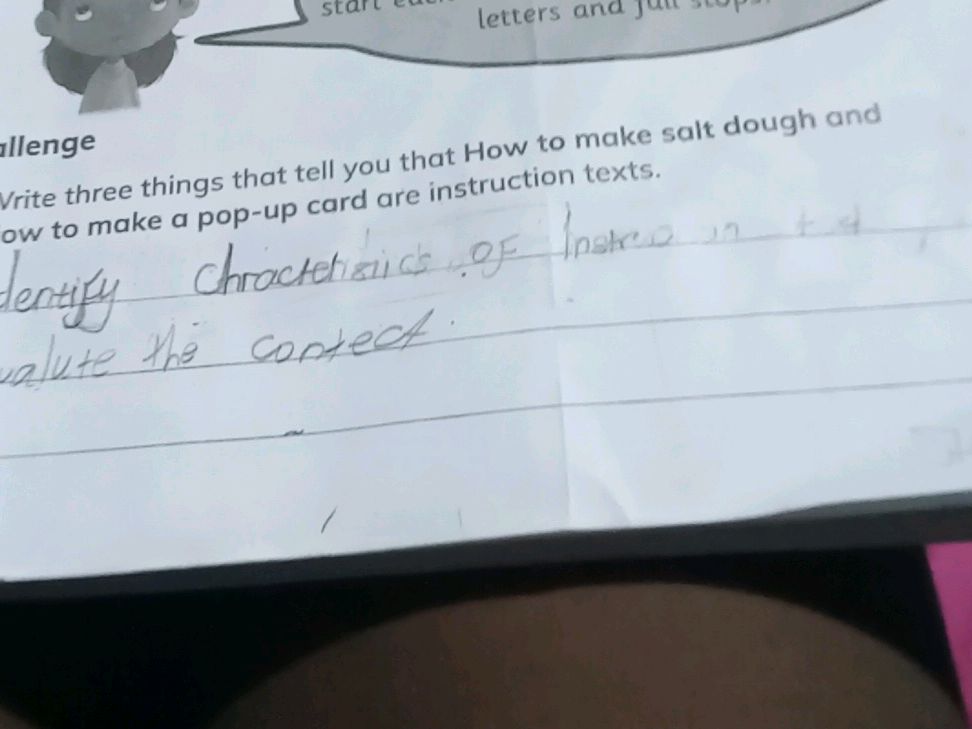 start
letters and full stops.
allenge
Write three things that tell you that How to make salt dough and
ow to make a pop-up card are instruction texts.
dentify Chractetisiics of
valute the contect.